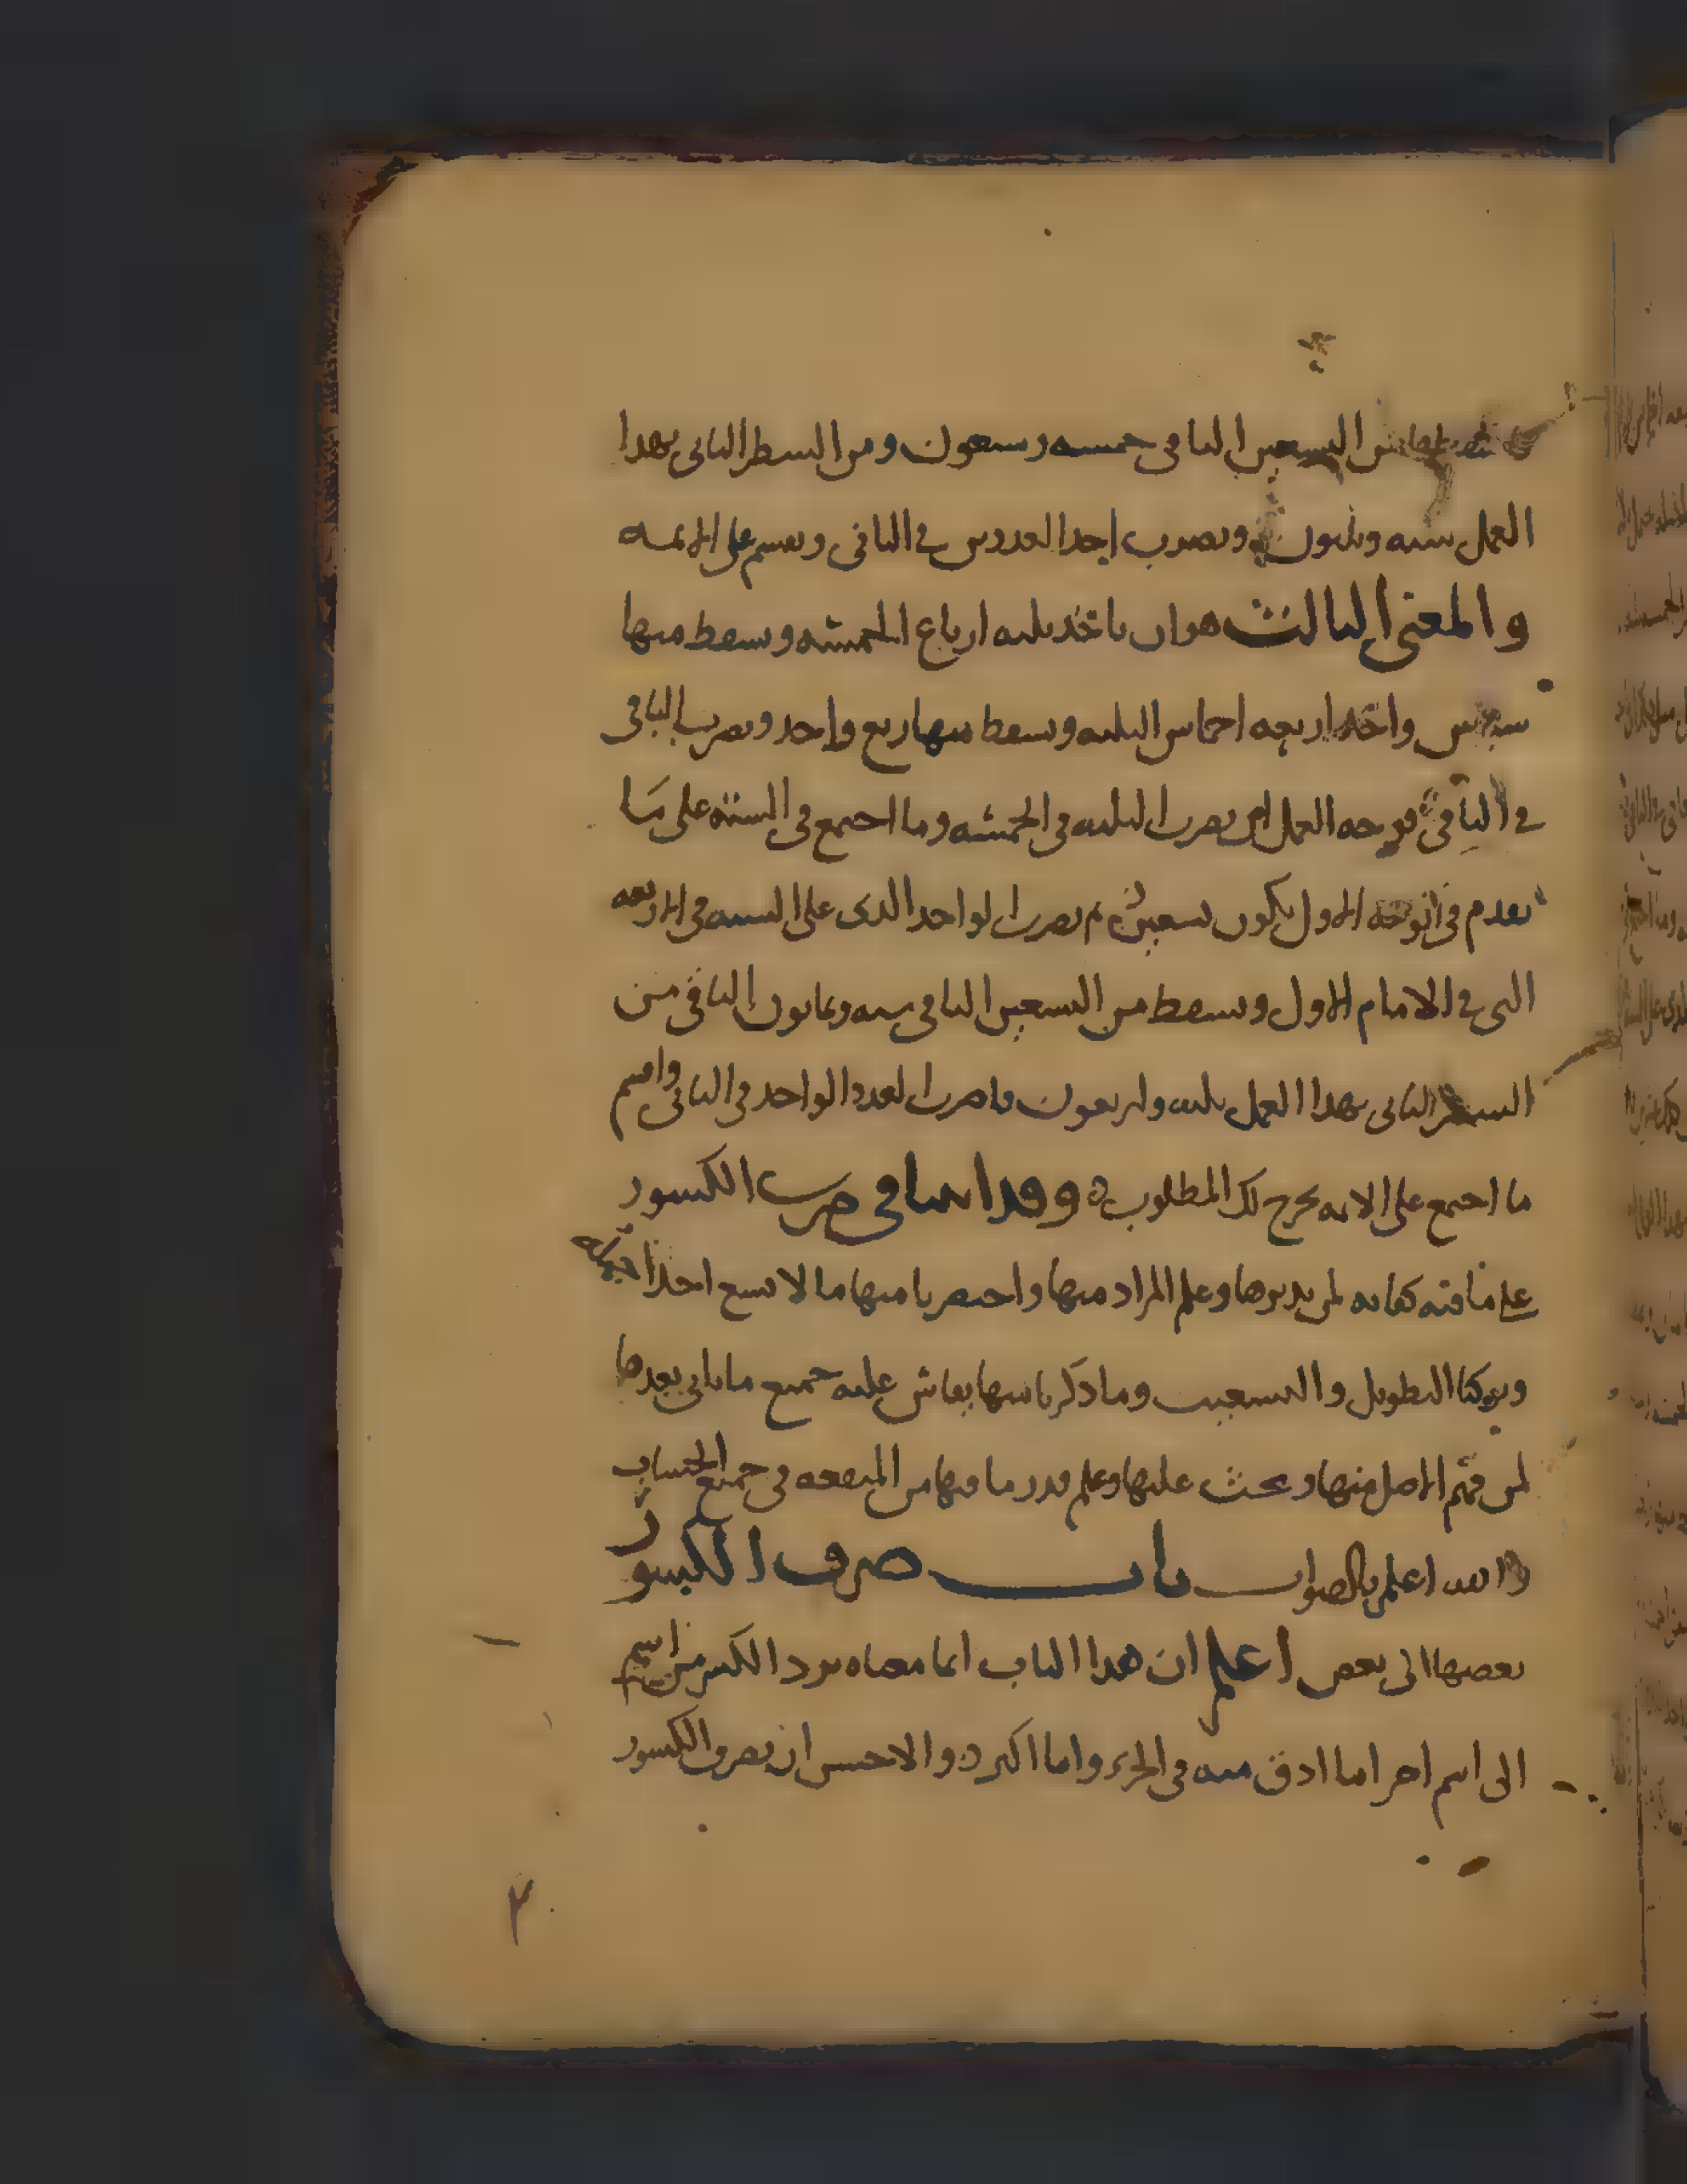 من السعين الباقي خمسه وسبعون ومن السطر الثاني بهدا
العمل سته وثلثون ويضرب احد العددين في الباقي ويقسم على الائمه
والمعنى الثالث هو ان ياخذ ثلثه ارباع الخمسه ويسقط منها
سدس واخد اربعه اخماس الثلثه ويسقط منها ربع واحد ويضرب الباقي
في الباقي فوجه العمل ان يضرب الثلثه في الخمسه وما اجتمع في السته على ما
تقدم في الوجه الاول يكون تسعين ثم يضرب الواحد الدى على السته في الاربعه
التى في الامام الاول ويسقط من التسعين الباقي سته وثمانون الباقي من
السطر الثاني بهدا العمل ثلثه واربعون فاضرب العدد الواحد في الثاني واقسم
ما اجتمع على الائمه يخرج لك المطلوب ه وقد اتينا في ضرب الكسور
على ما فيه كفايه لمن يدبرها وعلم المراد منها واختصرنا منها ما لا يسع احدا تركه
وتركنا التطويل والتسعيب وما ذكرنا منها يقاس عليه جميع ما ياتى بعدها
لمن فهم الاصل منها وبحث عليها وعلم قدر ما فيها من المنفعه في جميع الحساب
والله اعلم بالصواب باب صرف الكسور
بعضها الى بعض اعلم ان هدا الباب انما معناه يرد الكسر من اسم
الى اسم اخر اما ادق منه في الجزء واما اكبر ه والاحسن ان يصرف الكسور
٢